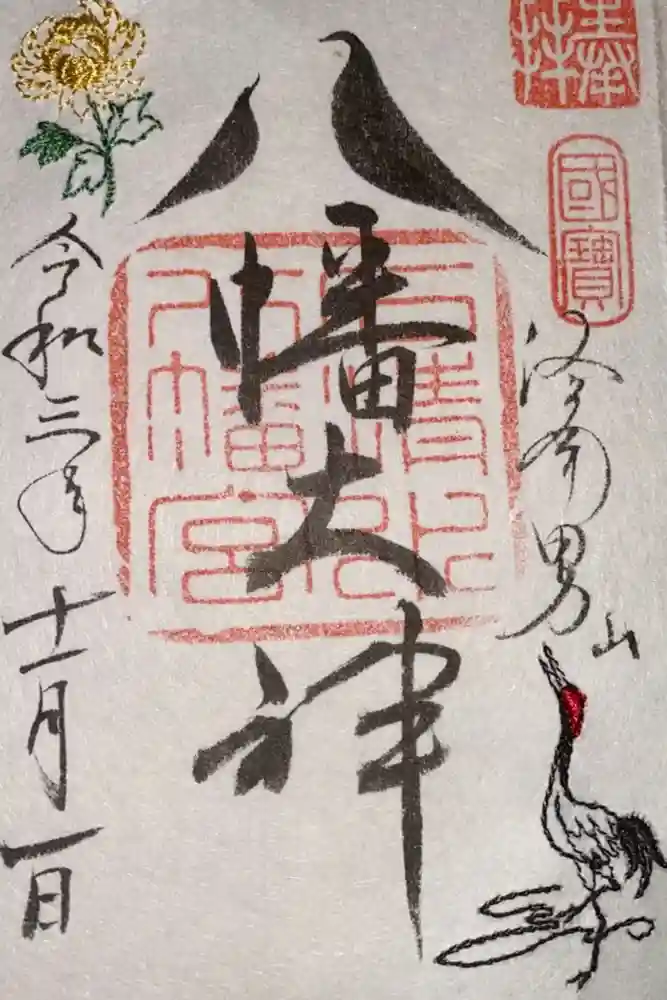 奉拝
國寶
洛南男山
八幡大神
石清水八幡宮
令和三年十一月一日